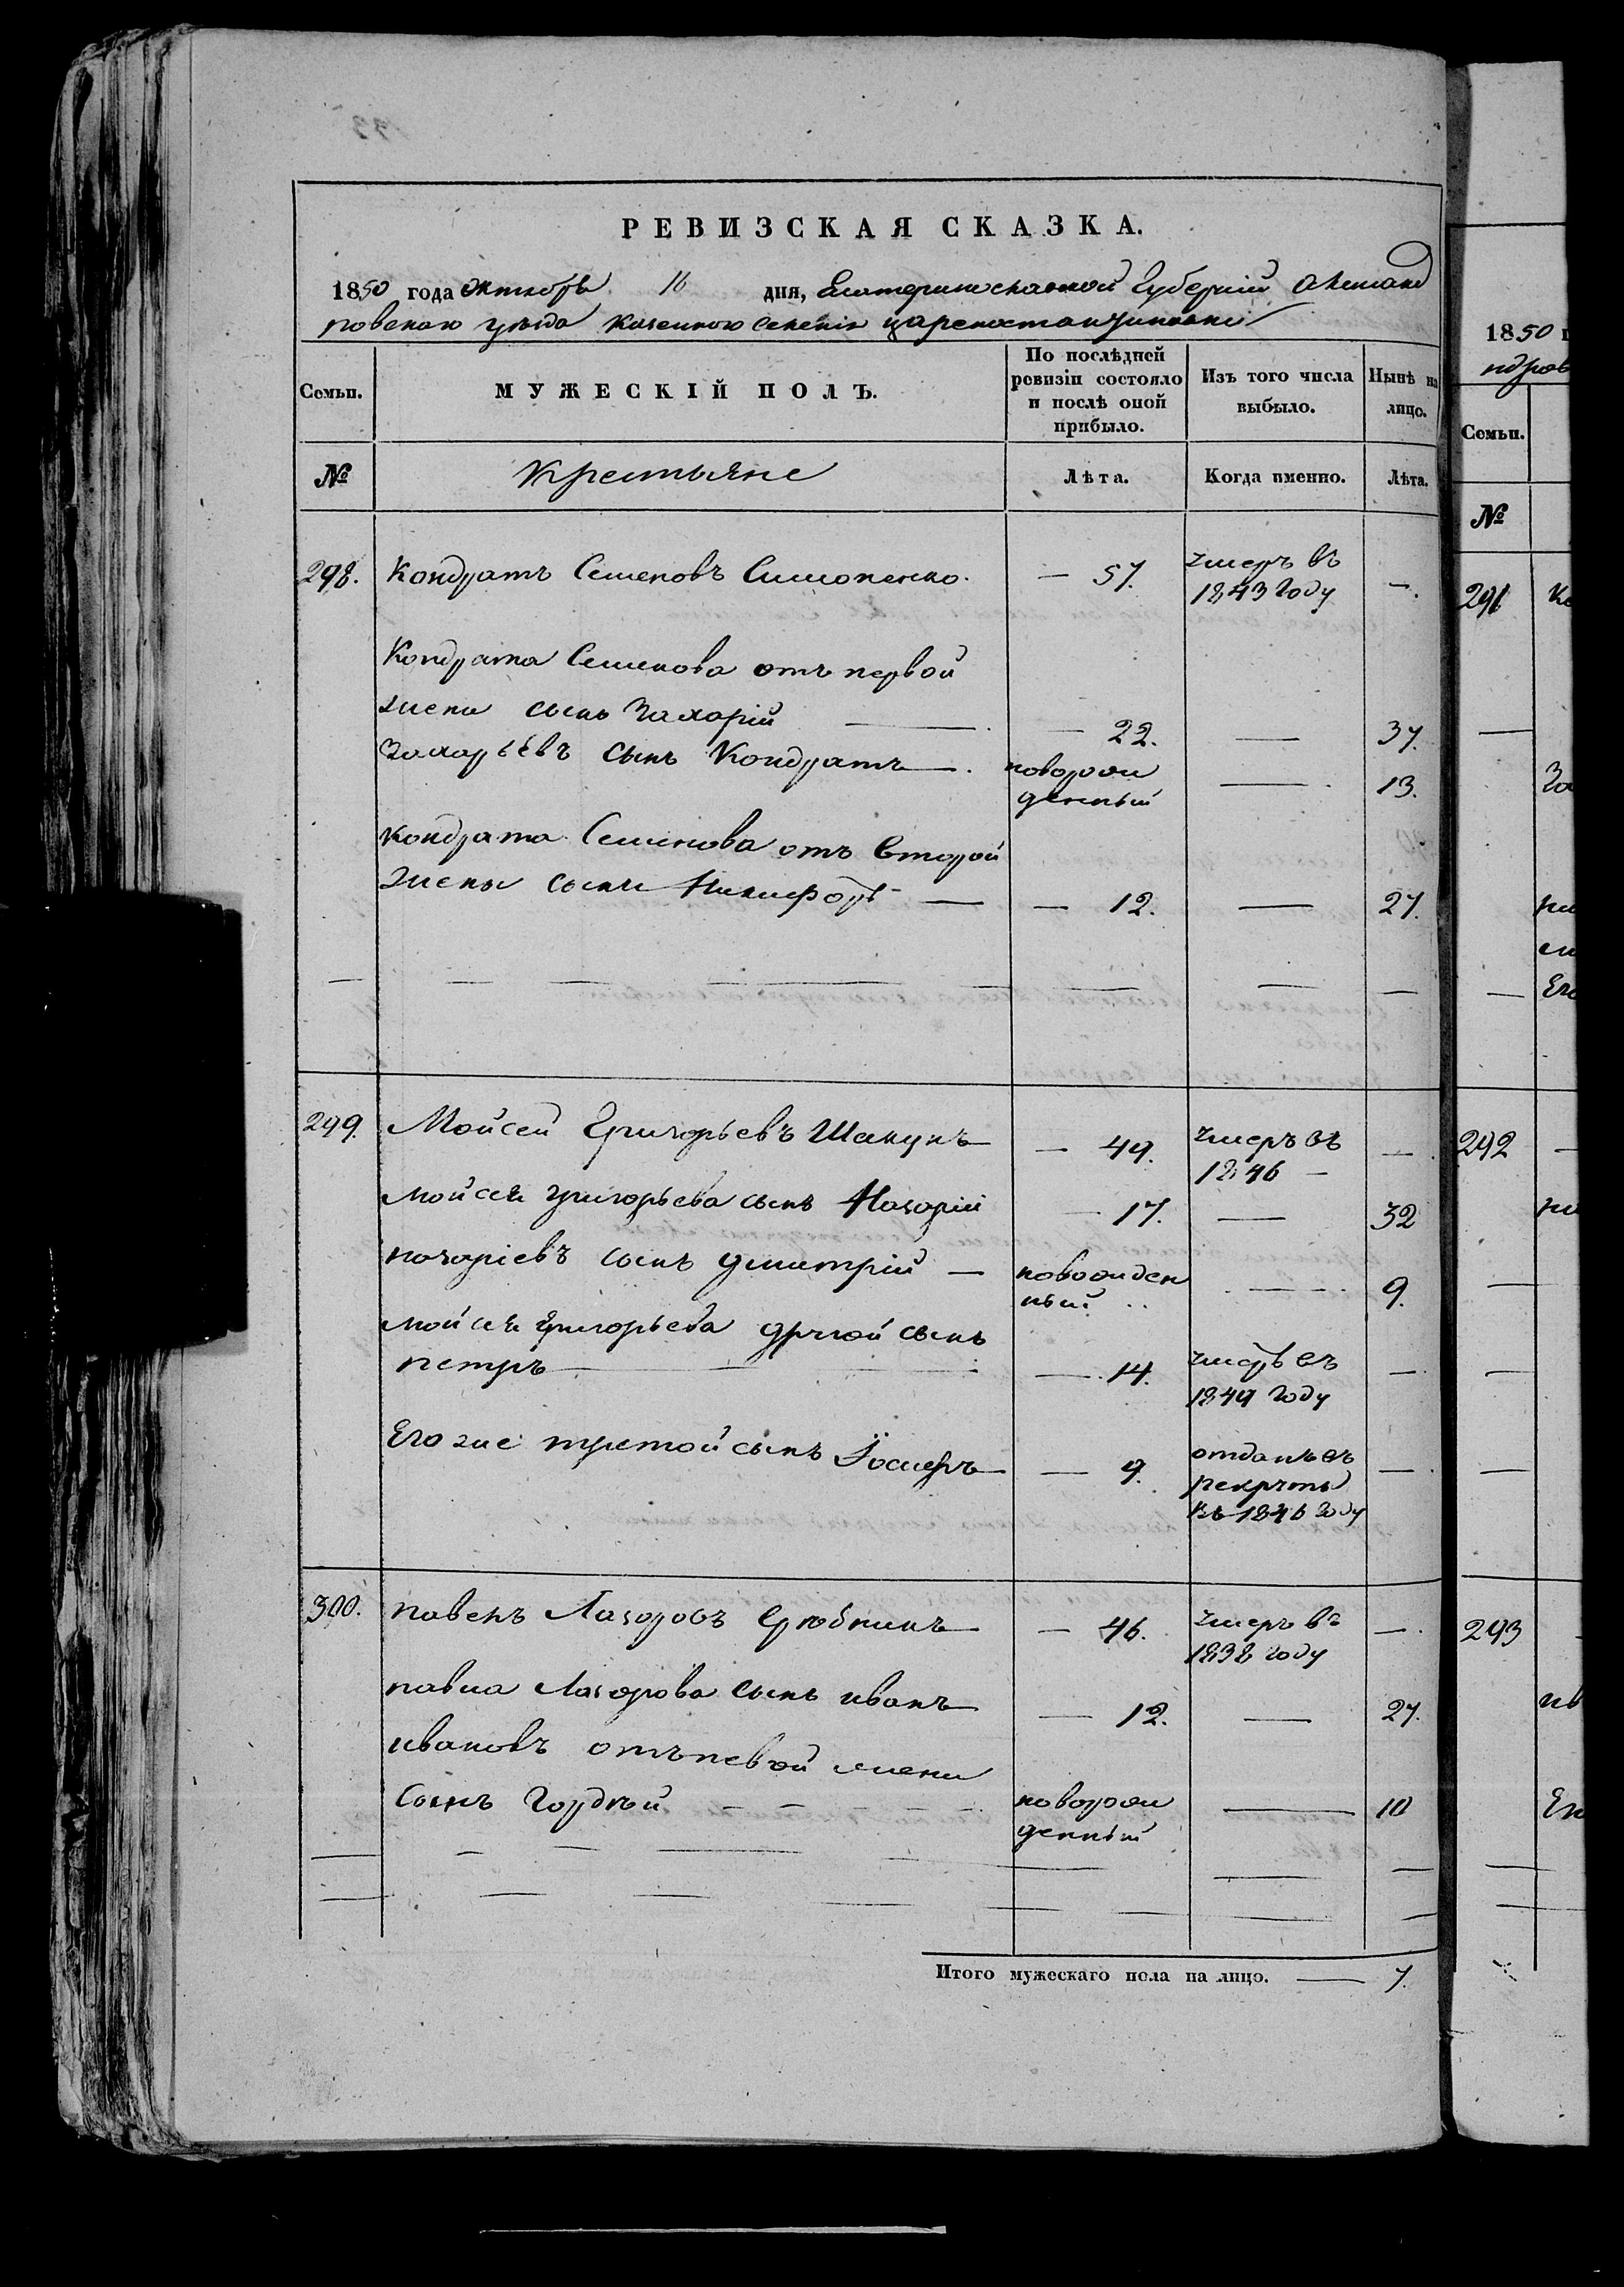 РЕВИЗСКАЯ СКАЗКА.
1850 года октября 16 дня, Екатеринославской Губерніи Александ
ровскаго уѣзда казенного селенія Цареконстантиновки
Семьи. МУЖЕСКІЙ ПОЛЪ. По послѣдней ревизіи состояло и послѣ оной прибыло. Изъ того числа выбыло. Нынѣ на лицо.
№ Крестьяне Лѣта. Когда именно. Лѣта.
298. Кондратъ Семеновъ Симоненко. — 57. умеръ въ 1843 году —.
Кондрата Семенова отъ первой
жены сынъ Захарій — 22. — 37.
Захарьевъ сынъ Кондратъ —. новорож
денный — 13.
Кондрата Семенова отъ второй
жены сынъ Никифоръ — — 12. — 27.
299. Мойсей Григорьевъ Шакунъ — 49. умеръ въ
1846 — —
Мойсея Григорьева сынъ Назарій — 17. — 32
Назаріевъ сынъ Дмитрій — новожден
ный — 9.
Мойсея Григорьева другой сынъ
Петръ — — 14. умеръ въ
1849 году —
Его же третой сынъ Іосифъ — — 9. отданъ въ
рекруты
въ 1846 году —
300. Павелъ Лазоровъ — 46. умеръ въ
1838 году —.
Павла Лазорова сынъ Иванъ — — 12. — 27.
Ивановъ отъ певой жены
сынъ Гордѣй — новорож
денный — 10
Итого мужескаго пола на лицо. — 7.
1850 г
ндров
Семьи.
№
291 Ко
За
Его
292
293
ив